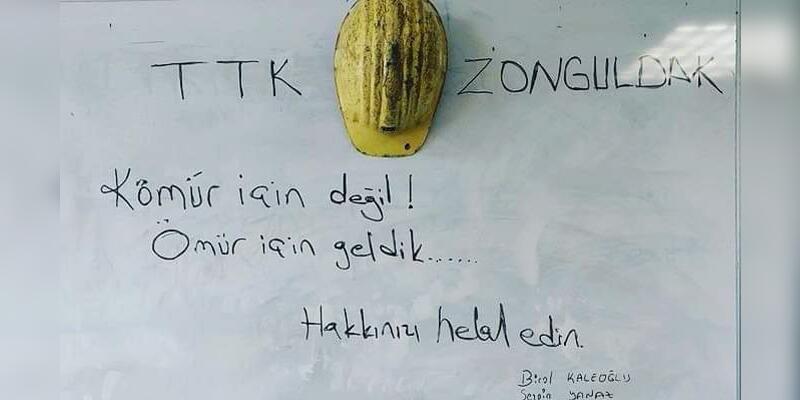 TTK ZONGULDAK
Kömür için değil!
Ömür için geldik.......
Hakkınızı helal edin.
Birol KALEOĞLU
YANAZ